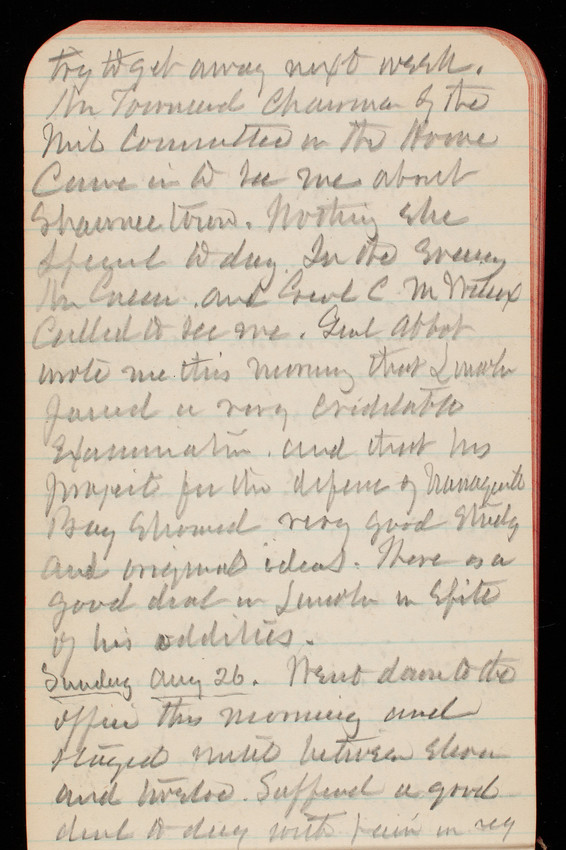 try to get away next week.
Mr Townsend Chairman of the
Mil Committee in the House
Came in to see me about
Shawneetown. Nothing else
special to day. In the Evening
Mr and Genl C. M Wilcox
Called to see me. Genl Abbot
wrote me this morning that Lincoln
passed a very creditable
Examination. and that his
project for the defense of Narragansett
Bay showed very good study
and original ideas. There is a
good deal in Lincoln in spite
of his oddities.
Sunday Aug 26. Went down to the
office this morning and
stayed until between eleven
and twelve. Suffered a good
deal to day with pain in my